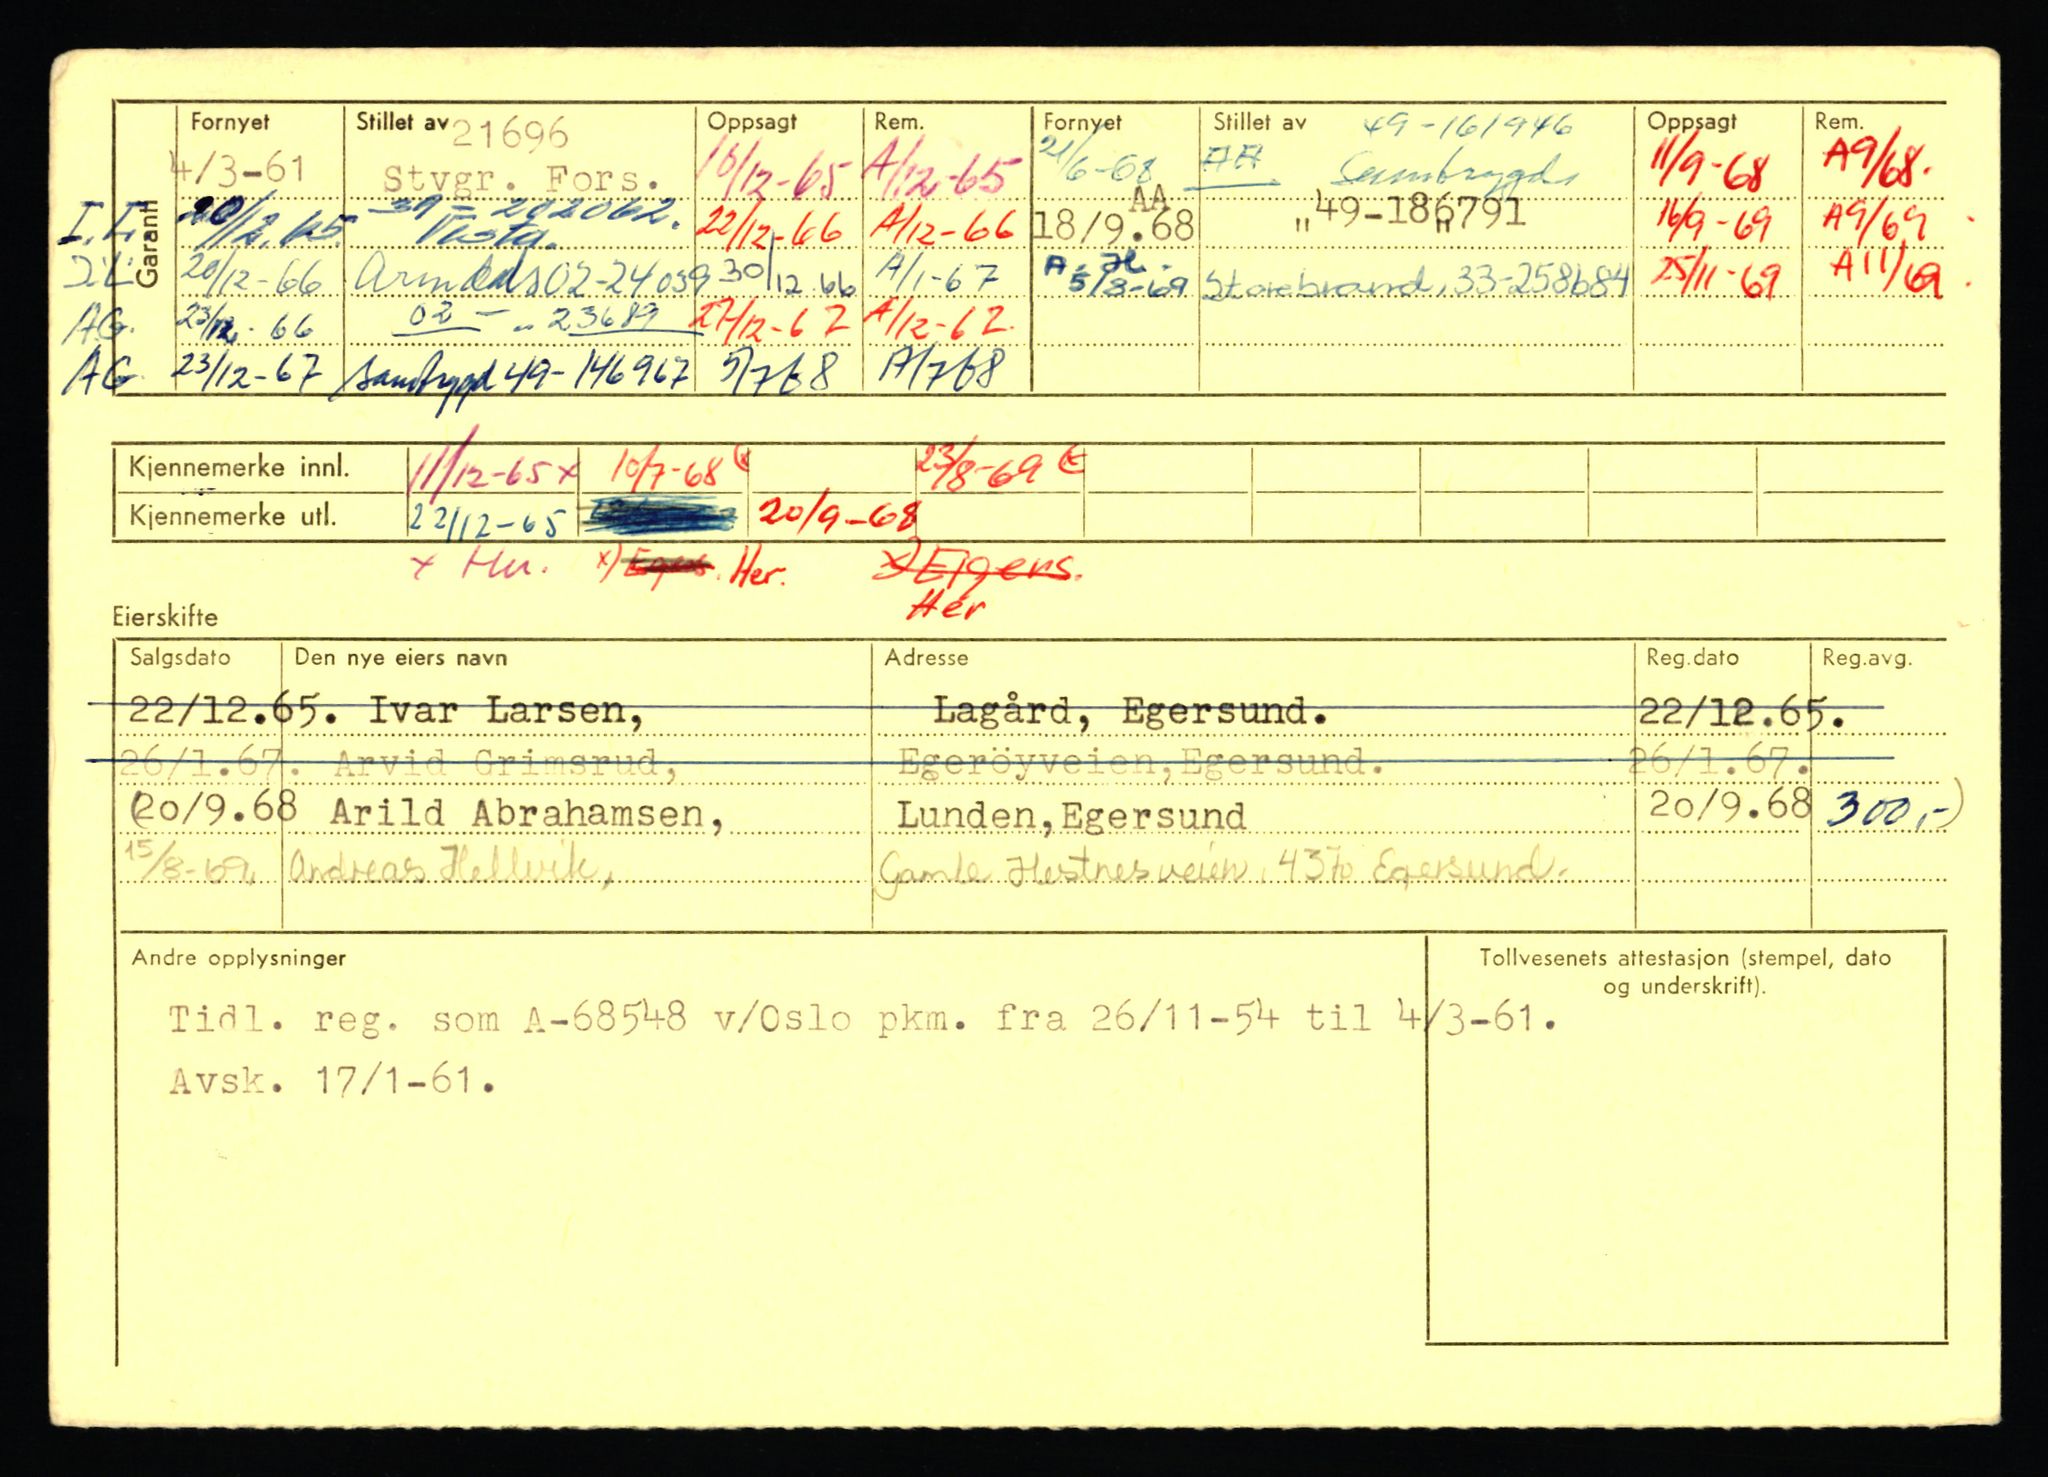 Garanti
Fornyet Stillet av Oppsagt Rem. Fornyet Stillet av Oppsagt Rem.
21696 49-161946
4/3-61 Stvgr. Fors. 16/12-65 A/12-65 21/6-68 AA 11/9-68 A9/68.
I.L. 20/12.65 39-292062. 22/12-66 A/12-66 AA 18/9.68 „49-186791 16/9-69 A9/69
I.L. 20/12-66 02-24039 30/12 66 A/1-67 5/8-69 Storebrand, 33-258684 25/11-69 A11/69
AG. 23/12-66 02 - „ 23689 27/12-67 A/12-67.
AG 23/12-67 Samtrygd 49-146967 5/7 68 A/7 68
Kjennemerke innl. 11/12-65 x 10/7-68 23/8-69
Kjennemerke utl. 22/12-65 20/9-68
x x) Her. x) Eigers.
Her
Eierskifte
Salgsdato Den nye eiers navn Adresse Reg.dato Reg.avg.
22/12.65. Ivar Larsen, Lagård, Egersund. 22/12.65.
26/1.67. Arvid Grimsrud, Egeröyveien, Egersund. 26/1.67.
(20/9.68 Arild Abrahamsen, Lunden, Egersund 20/9.68 300,-)
15/8-69, Andreas Hellvik, Gamle Hestnesveien, 4370 Egersund.
Andre opplysninger
Tollvesenets attestasjon (stempel, dato
og underskrift).
Tidl. reg. som A-68548 v/Oslo pkm. fra 26/11-54 til 4/3-61.
Avsk. 17/1-61.